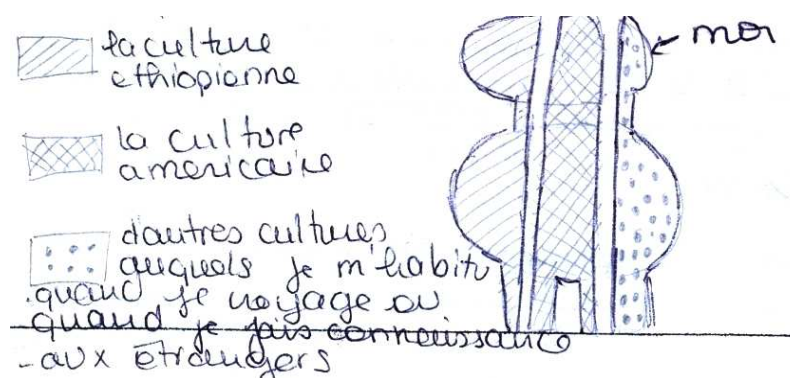 la culture
ethiopienne
moi
la culture
americaine
d'autres cultures
auquels je m'habitu
quand je voyage ou
quand je fais connaissance
-aux étrangers